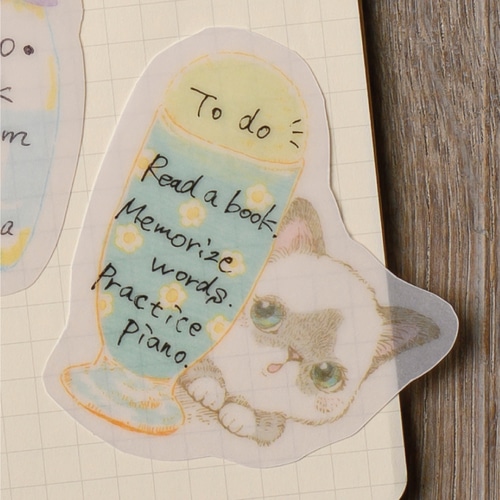 To do
Read a book.
Memorize
words.
Practice
Piano.
o.
m
a